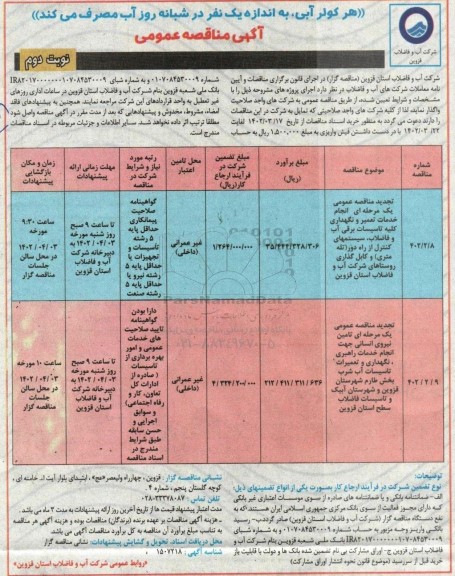 ((هر کولر آبی، به اندازه یک نفر در شبانه روز آب مصرف می کند))
آگهی مناقصه عمومی
نوبت دوم
شرکت آب و فاضلاب
قزوین
شرکت آب و فاضلاب استان قزوین (مناقصه گزار) در اجرای قانون برگزاری مناقصات و آیین
نامه معاملات شرکت های آب و فاضلاب در نظر دارد اجرای پروژه های مشروحه ذیل را با
مشخصات و شرایط تعیین شده، از طریق مناقصه عمومی به شرکت های واجد صلاحیت
واگذار نماید. لذا از کلیه شرکت های واجد صلاحیتی که تمایل به شرکت در این مناقصات
را دارند دعوت می گردد به منظور خرید اسناد مناقصات از تاریخ ۱۴۰۲/۰۳/۱۷ لغایت
۱۴۰۲/۰۳/۲۲ با در دست داشتن فیش واریزی به مبلغ ۱,۵۰۰,۰۰۰ ریال به حساب
شماره ۰۱۰۷۰۸۴۵۳۰۰۰۹ و به شماره شبای IR۸۲۰۱۷۰۰۰۰۰۰۰۱۰۷۰۸۴۵۳۰۰۰۹
بانک ملی شعبه قزوین بنام شرکت آب و فاضلاب استان قزوین در ساعات اداری روزهای
غیر تعطیل به واحد قراردادهای این شرکت مراجعه نمایند. همچنین به پیشنهادهای فاقد
امضاء، مشروط، مخدوش و پیشنهادهایی که بعد از مدت مقرر در آگهی مناقصه واصل شود
مطلقا ترتیب اثر داده نخواهد شد. سایر اطلاعات و جزئیات مربوطه در اسناد مناقصات
مندرج است.
شماره مناقصه
موضوع مناقصه
مبلغ برآورد (ریال)
مبلغ تضمین شرکت در فرآیند ارجاع کار(ریال)
محل تامین اعتبار
رتبه مورد نیاز و شرایط شرکت در مناقصه
مهلت زمانی ارائه پیشنهادات
زمان و مکان بازگشایی پیشنهادات
۴۰۲/۲/۸
تجدید مناقصه عمومی
یک مرحله ای انجام
خدمات تعمیر و نگهداری
کلیه تاسیسات برقی آب
و فاضلاب، سیستمهای
کنترل از راه دور(تله
متری) و کابل گذاری
روستاهای شرکت آب و
فاضلاب استان قزوین
۳۵/۳۴۲/۲۲۸/۳۰۶
۱/۲۶۴/۰۰۰/۰۰۰
غیر عمرانی
(داخلی)
گواهینامه
صلاحیت
پیمانکاری
حداقل پایه
۵ رشته
تاسیسات و
تجهیزات یا
حداقل پایه ۵
رشته نیرو یا
حداقل پایه ۵
رشته صنعت
تا ساعت ۹ صبح
روز شنبه مورخه
۱۴۰۲/۰۴/۰۳ به
دبیرخانه شرکت
آب و فاضلاب
استان قزوین
ساعت ۹:۳۰
مورخه
۱۴۰۲/۰۴/۰۳
در محل سالن
جلسات
مناقصه گزار
۴۰۲/۲/۹
تجدید مناقصه عمومی
یک مرحله ای تامین
نیروی انسانی جهت
انجام خدمات راهبری
، نگهداری و تعمیرات
تاسیسات آب شرب
بخش طارم شهرستان
قزوین و شهرستان آبیک
و تاسیسات فاضلاب
سطح استان قزوین
۲۱۲/۴۱۱/۳۱۱/۶۳۶
۴/۳۲۴/۲۰۰/۰۰۰
غیر عمرانی
(داخلی)
دارا بودن
گواهینامه
تایید صلاحیت
های خدمات
عمومی و امور
بهره برداری از
تاسیسات
( صادره از
ادارات کل
تعاون، کار و
رفاه اجتماعی)
و سوابق
اجرایی و
حسن سابقه
طبق شرایط
مندرج در
اسناد مناقصه
تا ساعت ۹ صبح
روز شنبه مورخه
۱۴۰۲/۰۴/۰۳ به
دبیرخانه شرکت
آب و فاضلاب
استان قزوین
ساعت ۱۰ مورخه
۱۴۰۲/۰۴/۰۳
در محل سالن
جلسات
مناقصه گزار
ParsNamadData
توضیحات:
نوع تضمین شرکت در فرآیند ارجاع کار بصورت یکی از انواع تضمینهای ذیل:
الف - ضمانتنامه بانکی و یا ضمانتنامه های صادره از سوی موسسات اعتباری غیر بانکی
که دارای مجوز فعالیت از سوی بانک مرکزی جمهوری اسلامی ایران هستند(که به
نفع دستگاه مناقصه گزار (شرکت آب و فاضلاب استان قزوین) صادر گردد)ب- رسید
بانکی واریز وجه مزبور به حساب شماره ۰۱۰۷۰۸۴۵۳۰۰۰۹ به شماره شبای
IR۸۲۰۱۷۰۰۰۰۰۰۰۱۰۷۰۸۴۵۳۰۰۰۹ بانک ملی شعبه قزوین بنام شرکت آب و
فاضلاب استان قزوین ج- اوراق مشارکت بی نام تضمین شده بانک ها و دولت با قابلیت باز
خرید قبل از سررسید (موضوع قانون نحوه انتشار اوراق مشارکت)
نشانی مناقصه گزار : قزوین، چهارراه ولیعصر«عج» ، ابتدای بلوار آیت ا.. خامنه ای ،
کوچه گلستان پنجم، شماره ۴
تلفن تماس : ۰۲۸-۳۳۳۷۸۰۸۷
مدت اعتبار پیشنهاد قیمت ها از تاریخ آخرین روز ارائه پیشنهادات به مدت ۳ ماه می باشد.
. هزینه آگهی مناقصات بر عهده برنده (برندگان) مناقصات بوده و هزینه آگهی هر مناقصه
به تناسب مبلغ برآورد آن مناقصه به کل برآورد مناقصات آگهی می باشد.
محل دریافت اسناد، تحویل و گشایش پیشنهادات: نشانی مناقصه گزار
شناسه آگهی : ۱۵۰۷۲۱۸
«روابط عمومی شرکت آب و فاضلاب استان قزوین»